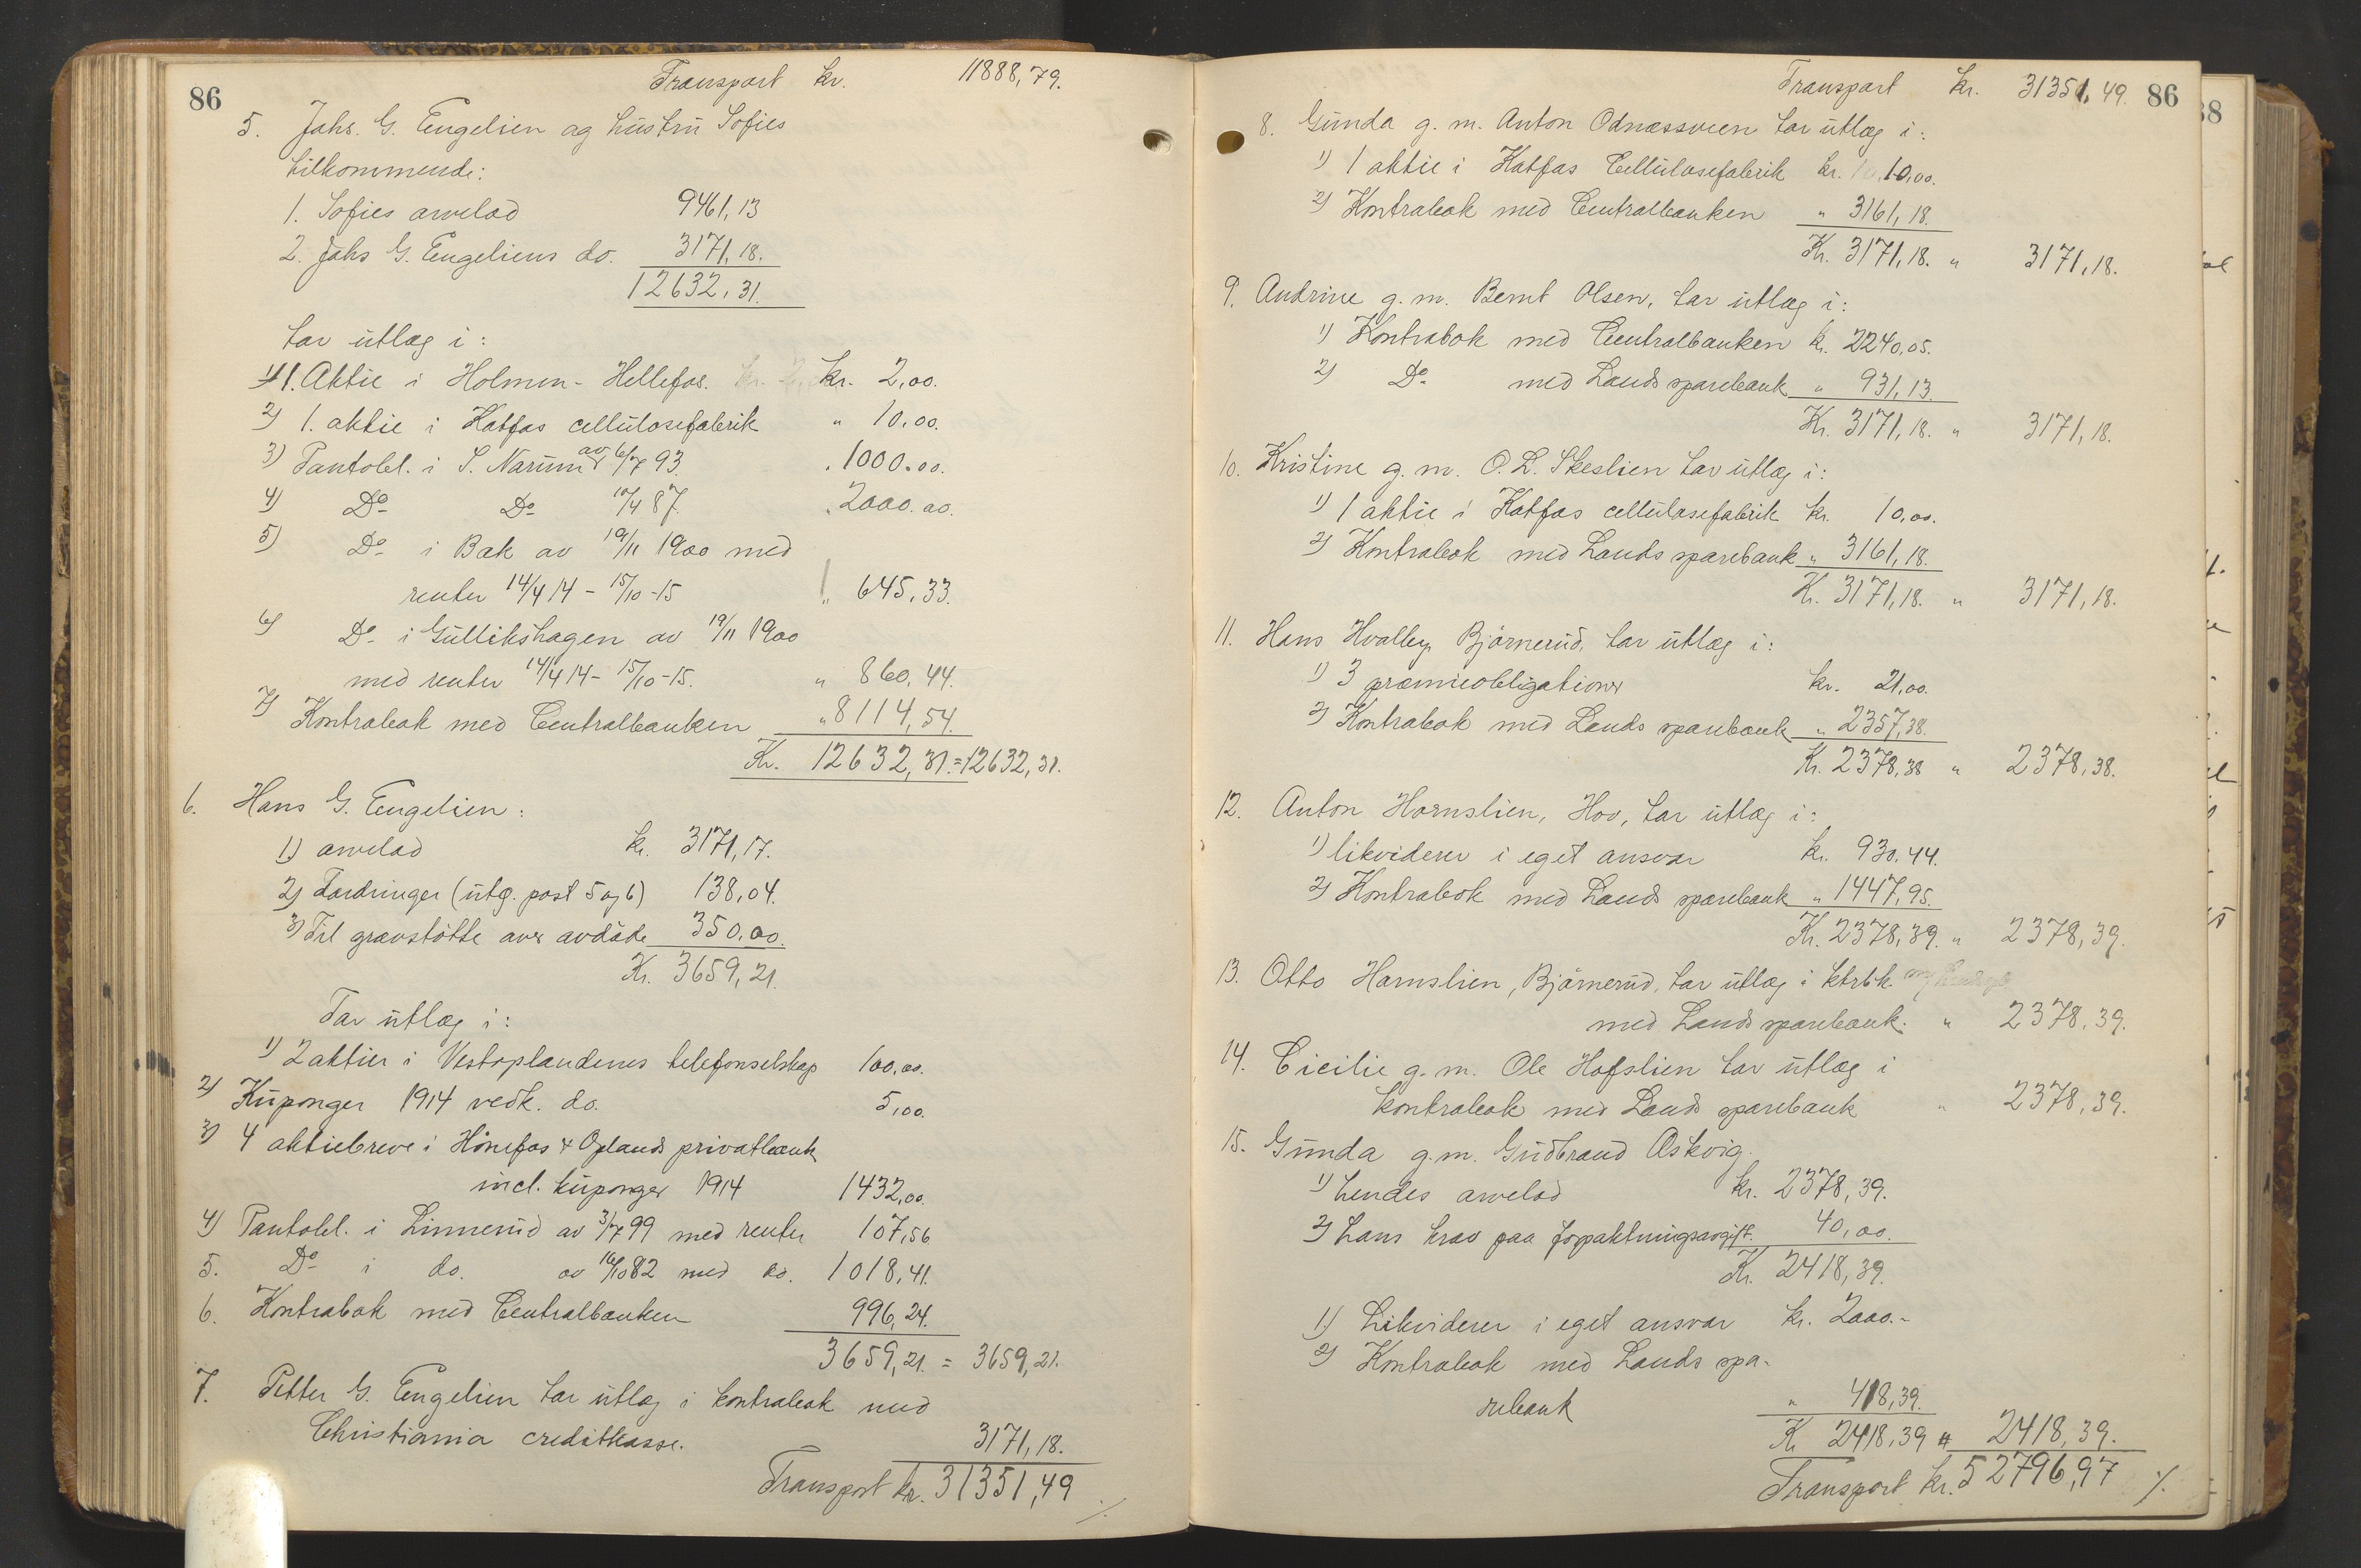 86
Transport kr. 11888,79.
5. Johs. G. Engelien og hustru Sofies
tilkommende:
1. Sofies arvelod 9461,13
2. Johs G. Engeliens do. 3171,18.
12632,31.
tar utlæg i:
1) 1. Aktie i Holmen-Hellefos. kr. 2,00.
2) 1. aktie i Katfos cellulosefabrik " 10,00.
3) Pantobl. i S. Narum av 6/7 93. " 1000.00.
4) Do Do 10/4 87. " 2000.00.
5) Do i Bak av 19/11 1900 med
renter 14/4 14 - 15/10 -15 " 645,33.
6) Do i Gullikshagen av 19/11 1900
med renter 14/4 14 - 15/10 -15. " 860,44.
7) Kontrabok med Centralbanken " 8114,54.
Kr. 12632,31. = 12632,31.
6. Hans G. Engelien:
1) arvelod kr. 3171,17.
2) Fordringer (utg. post 5 og 6) 138,04.
3) Til gravstøtte over avdøde 350,00.
Kr. 3659,21.
Tar utlæg i:
1) 2 aktier i Vestoplandenes telefonselskap 100,00.
2) Kuponger 1914 vedk. do. 5,00.
3) 4 aktiebreve i Hønefos & Oplands privatbank
incl. kuponger 1914 1432,00.
4) Pantobl. i Linnerud av 3/7 99 med renter 107,56
5. Do i do. av 16/10 82 med do. 1018,41.
6. Kontrabok med Centralbanken 996,24.
3659,21. = 3659,21.
7. Petter G. Engelien tar utlæg i kontrabok med
Christiania creditkasse. 3171,18.
Transport kr. 31351,49 ./.
Transport kr. 31351,49. 86
8. Gunda g. m. Anton Odnæssveen tar utlæg i:
1) 1 aktie i Katfos Cellulosefabrik kr. 10,00.
2) Kontrabok med Centralbanken " 3161,18.
Kr. 3171,18. " 3171,18.
9. Andrine g. m. Bernt Olsen, tar utlæg i:
1) Kontrabok med Centralbanken kr. 2240,05.
2) Do med Lands sparebank " 931,13.
Kr. 3171,18. " 3171,18.
10. Kristine g. m. O. L. Skeslien tar utlæg i:
1) 1 aktie i Katfos cellulosefabrik kr. 10,00.
2) Kontrabok med Lands sparebank " 3161,18.
Kr. 3171,18. " 3171,18.
11. Hans Hvalby, Bjørnerud, tar utlæg i:
1) 3 præmieobligationer kr. 21,00.
2) Kontrabok med Lands sparebank " 2357,38.
Kr. 2378,38 " 2378,38.
12. Anton Hornslien, Hov, tar utlæg i:
1) likviderer i eget ansvar kr. 930.44.
2) Kontrabok med Lands sparebank " 1447,95.
Kr. 2378,39. " 2378,39.
13. Otto Hornslien, Bjørnerud, tar utlæg i ktrbk.
med Lands sparebank. " 2378,39.
14. Cicilie g. m. Ole Hofslien tar utlæg i
kontrabok med Lands sparebank " 2378,39.
15. Gunda g. m. Gudbrand Askvig.
1) hendes arvelod kr. 2378,39.
2) hans krav paa forpaktningsavgift. 40,00.
Kr. 2418,39.
1) Likviderer i eget ansvar kr. 2000.-
2) Kontrabok med Lands spa-
rebank " 418,39.
Kr 2418,39 " 2418,39.
Transport kr. 52796,97 ./.